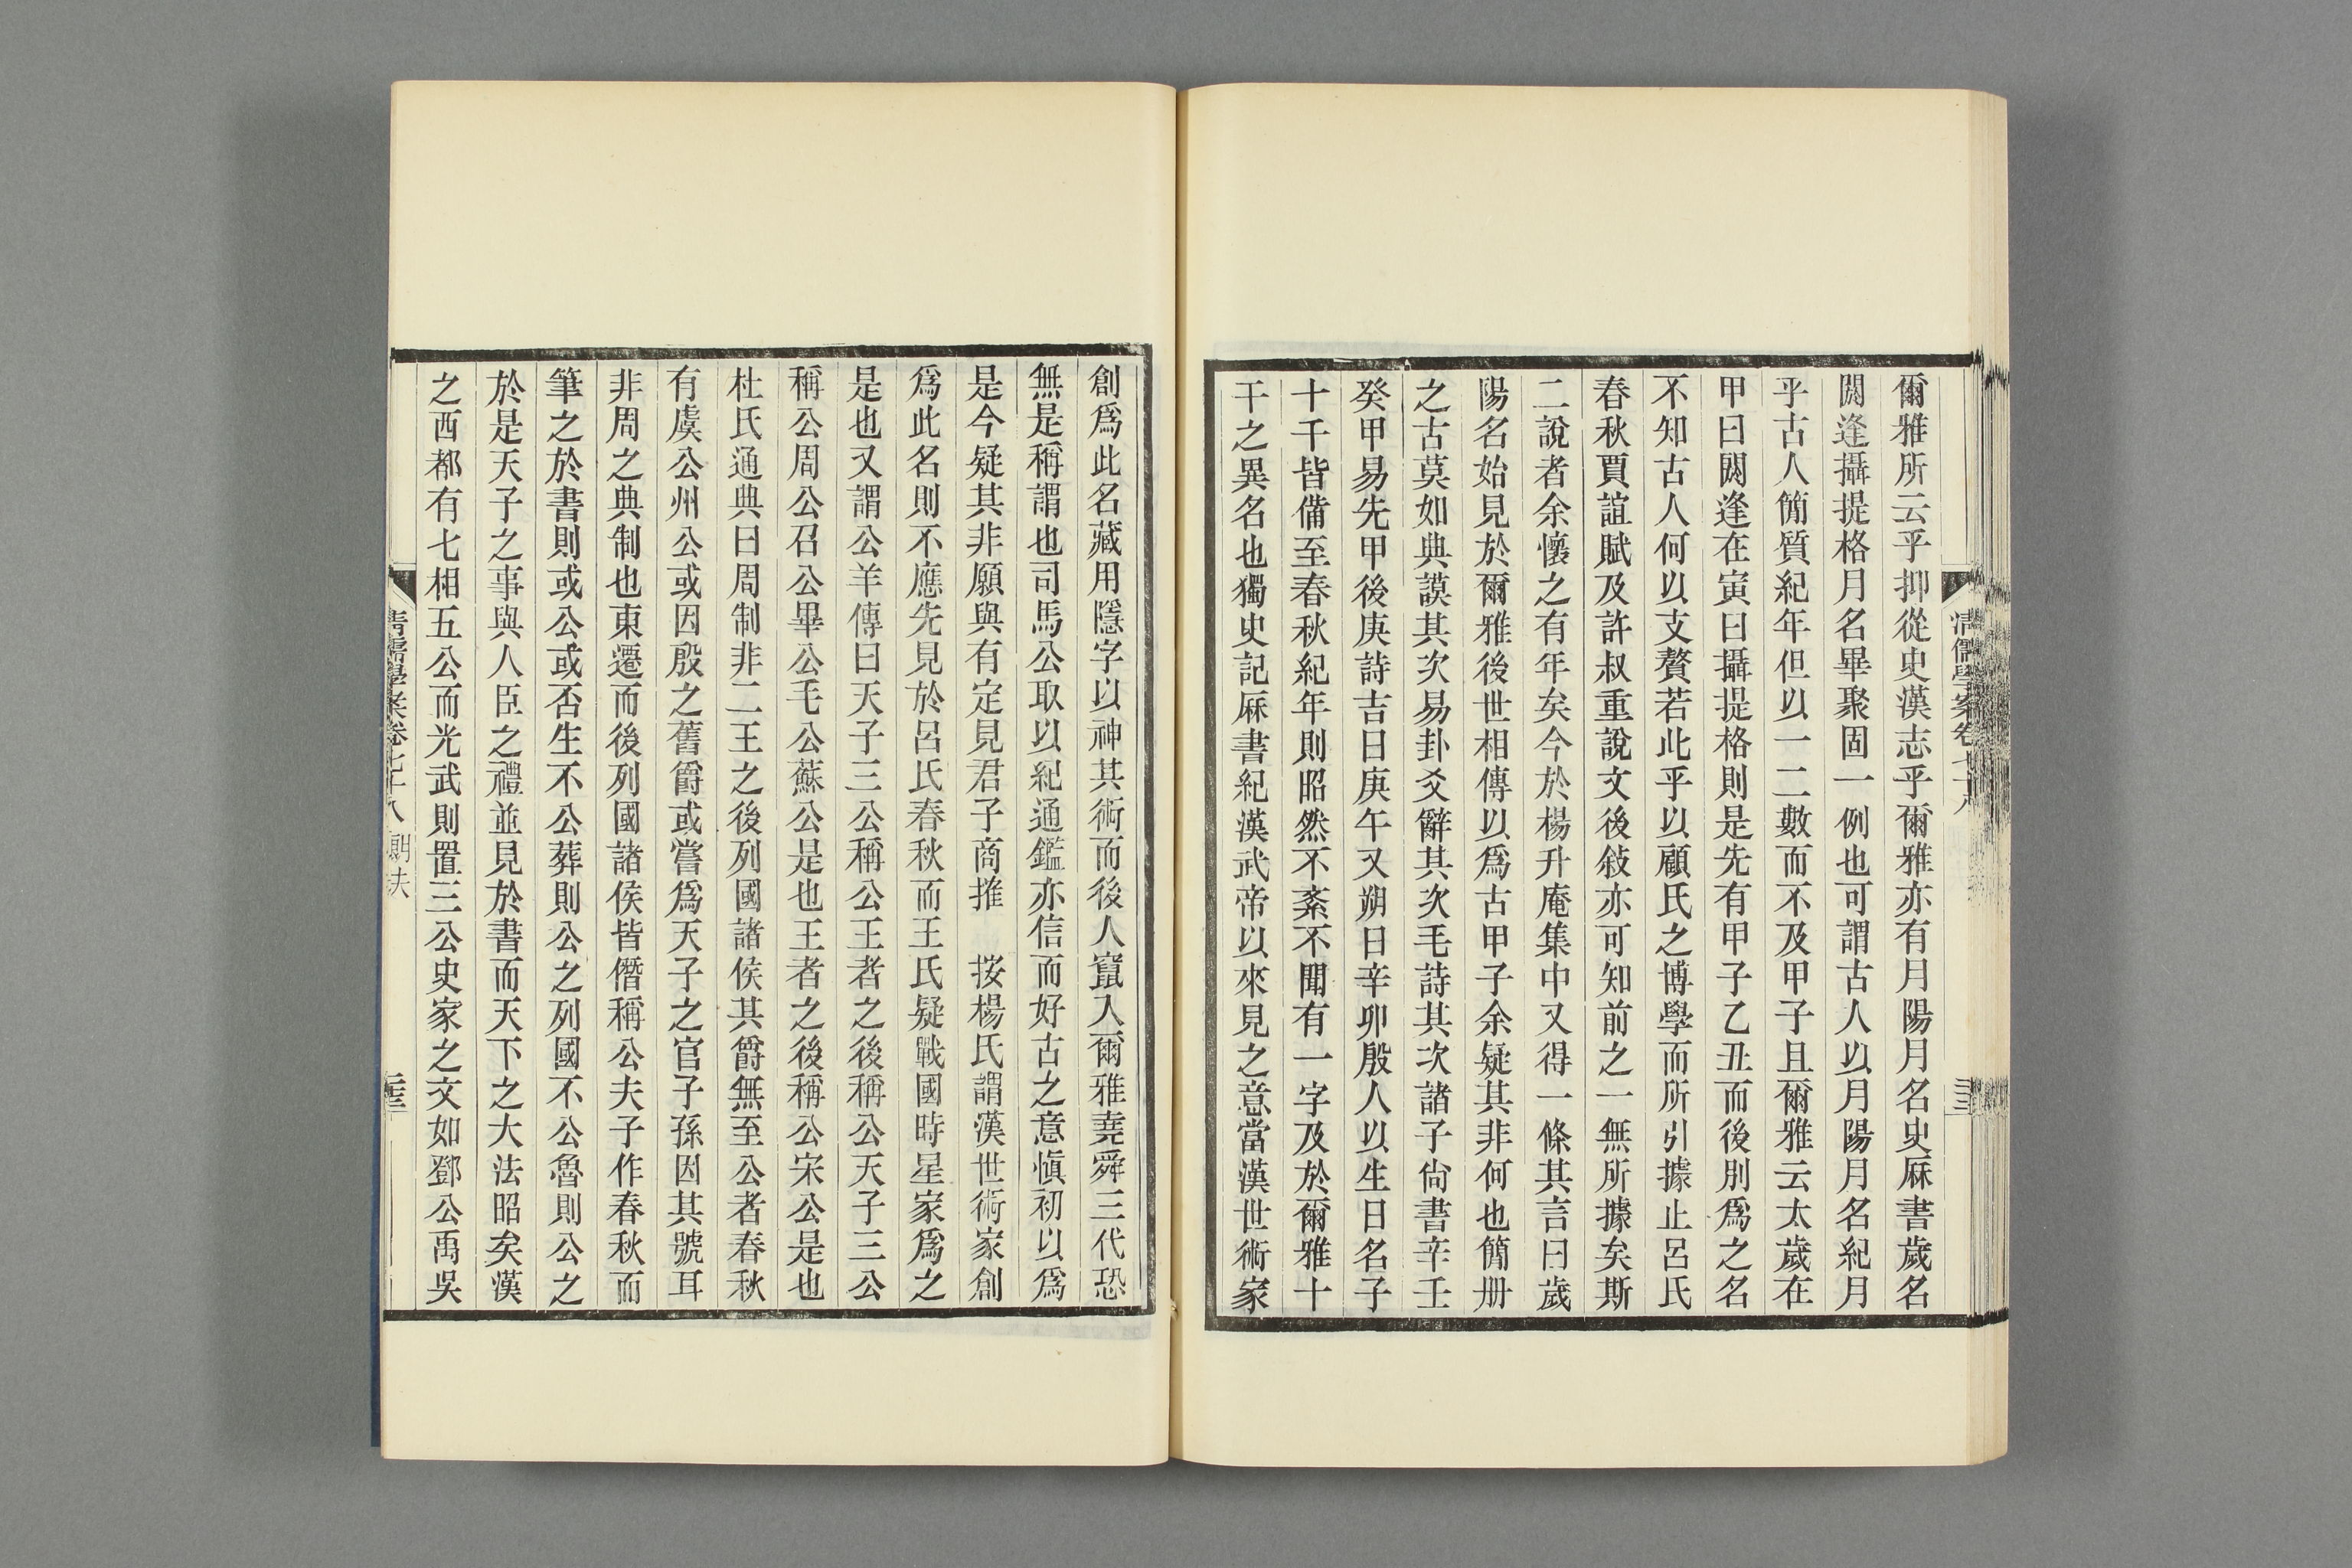 爾雅所云乎抑從史漢志乎爾雅亦有月陽月名史厤書歲名
閼逢攝提格月名畢聚固一例也可謂古人以月陽月名紀月
乎古人簡質紀年但以一二數而不及甲子且爾雅云太歲在
甲曰閼逢在寅曰攝提格則是先有甲子乙丑而後別爲之名
不知古人何以支贅若此乎以顧氏之博學而所引據止呂氏
春秋賈誼賦及許叔重說文後敍亦可知前之一無所據矣斯
二說者余懷之有年矣今於楊升庵集中又得一條其言曰歲
陽名始見於爾雅後世相傳以爲古甲子余疑其非何也簡册
之古莫如典謨其次易卦爻辭其次毛詩其次諸子尙書辛壬
癸甲易先甲後庚詩吉日庚午又朔日辛卯殷人以生日名子
十千皆備至春秋紀年則昭然不紊不聞有一字及於爾雅十
干之異名也獨史記厤書紀漢武帝以來見之意當漢世術家
創爲此名藏用隱字以神其術而後人竄入爾雅堯舜三代恐
無是稱謂也司馬公取以紀通鑑亦信而好古之意愼初以爲
是今疑其非願與有定見君子商搉　按楊氏謂漢世術家創
爲此名則不應先見於呂氏春秋而王氏疑戰國時星家爲之
是也又謂公羊傳曰天子三公稱公王者之後稱公天子三公
稱公周公召公畢公毛公蘇公是也王者之後稱公宋公是也
杜氏通典曰周制非二王之後列國諸侯其爵無至公者春秋
有虞公州公或因殷之舊爵或嘗爲天子之官子孫因其號耳
非周之典制也東遷而後列國諸侯皆僭稱公夫子作春秋而
筆之於書則或公或否生不公葬則公之列國不公魯則公之
於是天子之事與人臣之禮並見於書而天下之大法昭矣漢
之西都有七相五公而光武則置三公史家之文如鄧公禹吳
清儒學案卷七十八